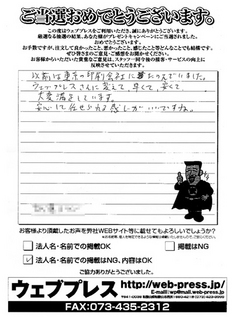 ご当選おめでとうございます。
この度はウェブプレスをご利用いただき、誠にありがとうございます。
厳選なる抽選の結果、あなた様がプレゼントキャンペーンにご当選されました。
おめでとうございます。
お手数ですが、注文して良かったこと、悪かったこと、感じたこと等どんなことでも結構です。
ぜひ皆さまのご意見・ご感想をお聞かせください。
お客様からいただいた貴重なご意見は、スタッフ一同今後の接客・サービスの向上に
反映させていただきます。
以前は東京の印刷会社に
ウェブプレスさんに変えて早くて、安くて、
大変満足しています。
安心して任せられる感じがいいですね。
お客様より頂戴したお声を弊社WEBサイト等に載せてもよろしいでしょうか?
法人名・名前での掲載OK
掲載はNG
法人名・名前での掲載はNG、内容はOK
ご協力ありがとうございました。
ウェブプレス
http://web-press.jp/
E-mail/wp@mail.web-press.jp
FAX:073-435-2312